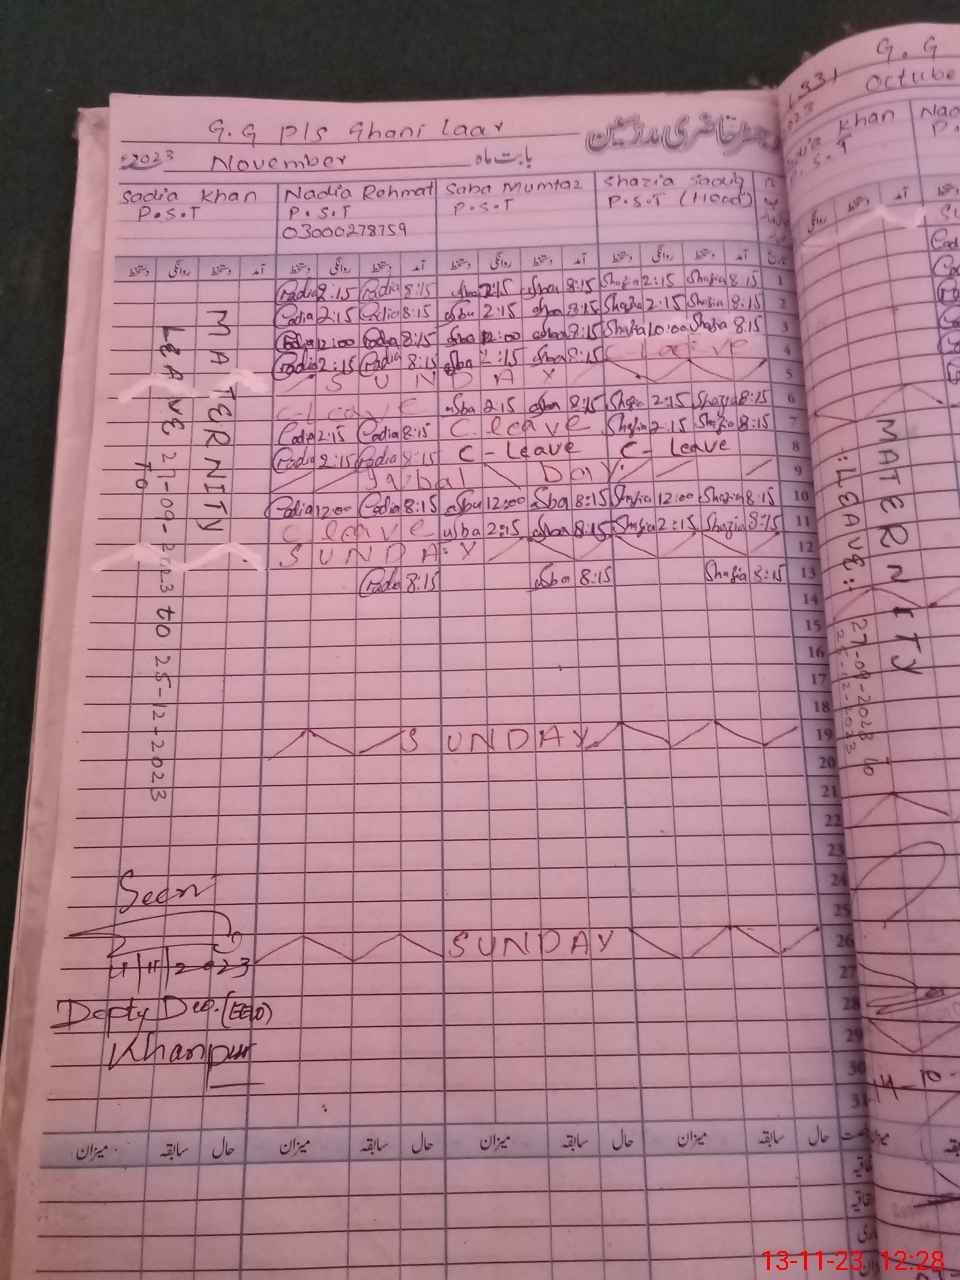 G.G P/S Ghani Laar
رجسٹر حاضری مدرسین
2023 November بابت ماہ
Sadia Khan Nadia Rehmat Saba Mumtaz Shazia Sadiq
P.S.T P.S.T P.S.T P.S.T (Head)
03000278759
دستخط روانگی دستخط آمد دستخط روانگی دستخط آمد دستخط روانگی دستخط آمد
2:15 8:15 2:15 8:15 Shazia 2:15 Shazia 8:15 1
2:15 8:15 2:15 8:15 Shazia 2:15 Shazia 8:15 2
12:00 8:15 12:00 8:15 Shazia 10:00 Shazia 8:15 3
2:15 8:15 2:15 8:15 C leave 4
SUNDAY 5
C-leave 2:15 8:15 Shazia 2:15 Shazia 8:15 6
2:15 8:15 C.leave Shazia 2:15 Shazia 8:15 7
2:15 8:15 C-Leave C-Leave 8
Iqbal Day 9
12:00 8:15 12:00 8:15 Shazia 12:00 Shazia 8:15 10
C leave 2:15 8:15 Shazia 2:15 Shazia 8:15 11
SUNDAY 12
8:15 8:15 Shazia 8:15 13
14
15
16
17
18
SUNDAY 19
20
21
22
23
24
25
SUNDAY 26
27
28
29
30
31
MATERNITY
LEAVE 27-09-2023 to 25-12-2023
To
Seen
11/11/2023
Depty Deo. (EEO)
Khanpur
میزان سابقہ حال میزان سابقہ حال میزان سابقہ حال میزان سابقہ حال
G.G
Octobe
Khan
P.S.T
MATERNITY
::LEAVE::
27-09-2023 to
25-12-2023
13-11-23 12:28